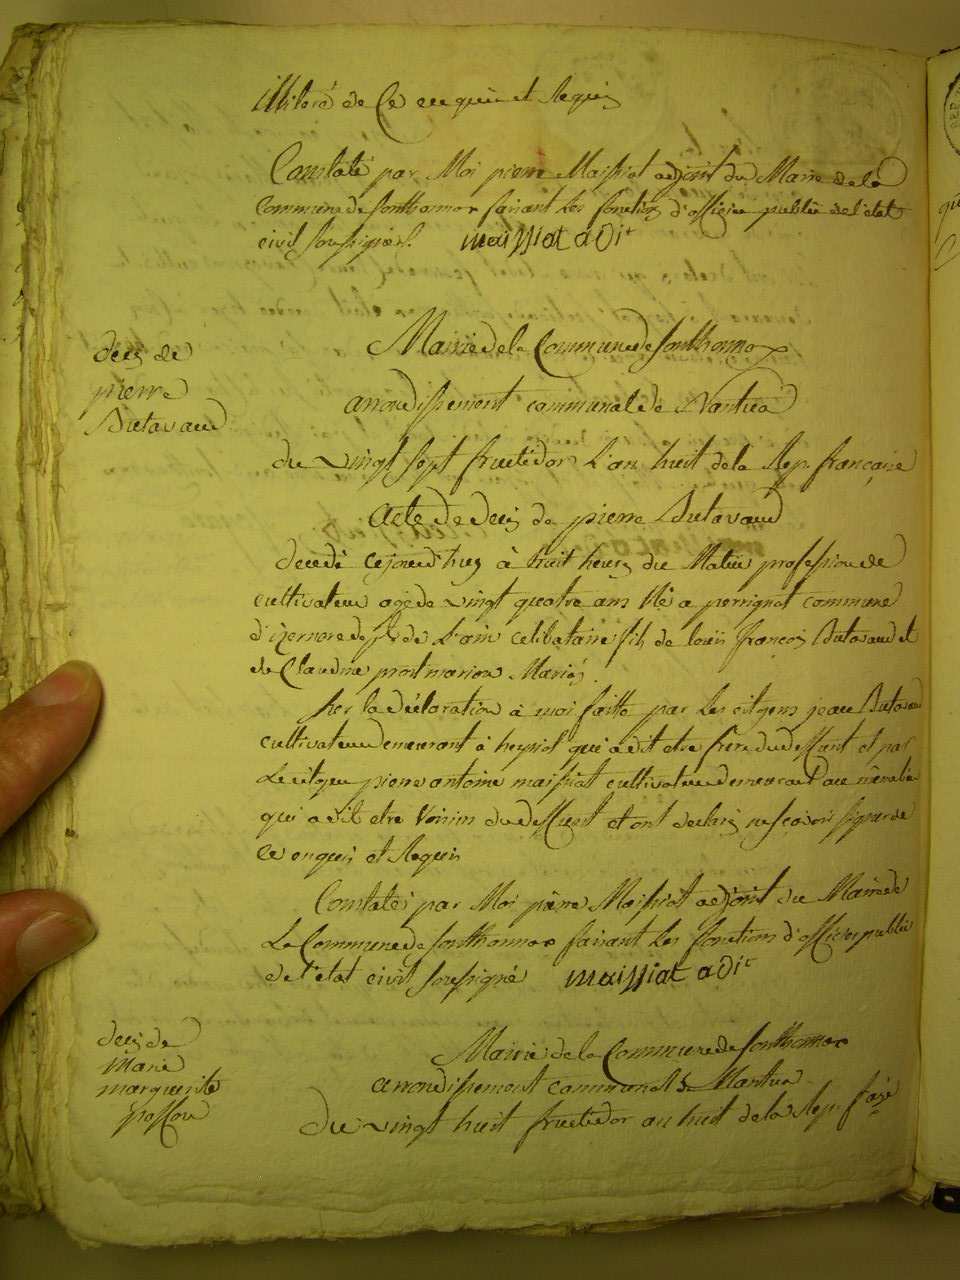 illiteré de ce enquis et Requis
Constaté par Moi pierre Maissiat adjoint du Maire de la
Commune de Sonthonnax faisant les fonctions d'officier public de l'état
civil soussigné. maissiat adjt
deces de
pierre
Dutavaud
Mairie de la Commune de Sonthonnax
arrondissement communal de Nantua
du vingt sept fructidor L'an huit de la Rep. française
acte de deces de pierre Dutavaud
decedé cejourd'huy à huit heures du Matin profession de
cultivateur agé de vingt quatre ans Né a perrignat commune
d'izernore dept de L'ain celibataire fils de louis françois Dutavaud et
de Claudine prost marion Mariés.
sur la déclaration à moi faitte par les citoyens jean Dutavaud
cultivateur demeurant à heyriat qui a dit etre frere du deffunt et par
Le citoyen pierre antoine maissiat cultivateur demeurant au même lieu
qui a dit etre Voisin du deffunt et ont declaré ne scavoir signer de
ce enquis et Requis
Constaté par Moi pierre Maissiat adjoint du Maire de
La Commune de Sonthonnax faisant les fonctions d'officier public
de l'état civil soussigné maissiat adjt
deces de
Marie
marguerite
Mairie de la Commune de Sonthonnax
arrondissement communal de Nantua
Du vingt huit fructidor an huit de la Rep. fçaise